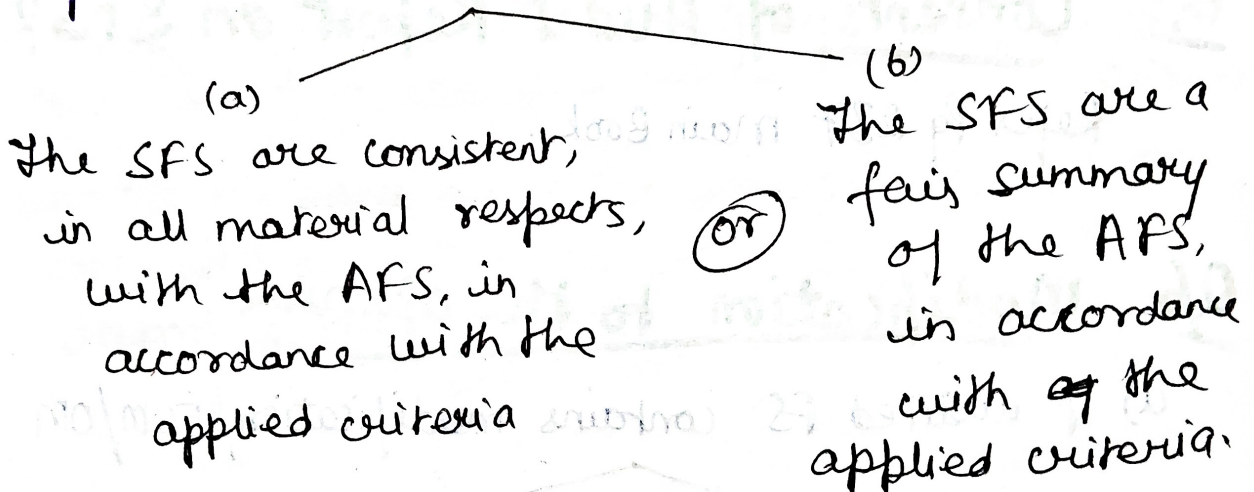 (a)
The SFS are consistent,
in all material respects,
with the AFS, in
accordance with the
applied criteria
or
(b)
The SFS are a
fair summary
of the AFS,
in accordance
with the
applied criteria.